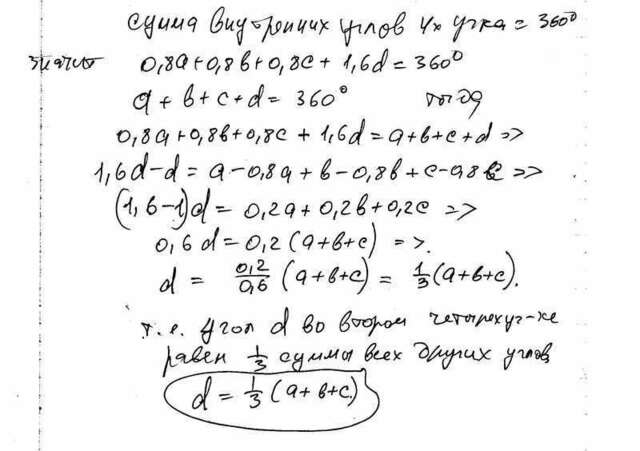 сумма внутренних углов 4х уг-ка = 360°
значит 0,8a+0,8в+0,8c+1,6d=360°
a+в+c+d=360° тогда
0,8a+0,8в+0,8c+1,6d=a+в+c+d=>
1,6d-d=a-0,8a+в-0,8в+c-0,8c=>
(1,6-1)d=0,2a+0,2в+0,2c=>
0,6d=0,2(a+в+c)=>.
d = 0,2/0,6 (a+в+c) = 1/3 (a+в+c).
т.е. угол d во втором четырехуг-ке
равен 1/3 суммы всех других углов
d = 1/3 (a+в+c)